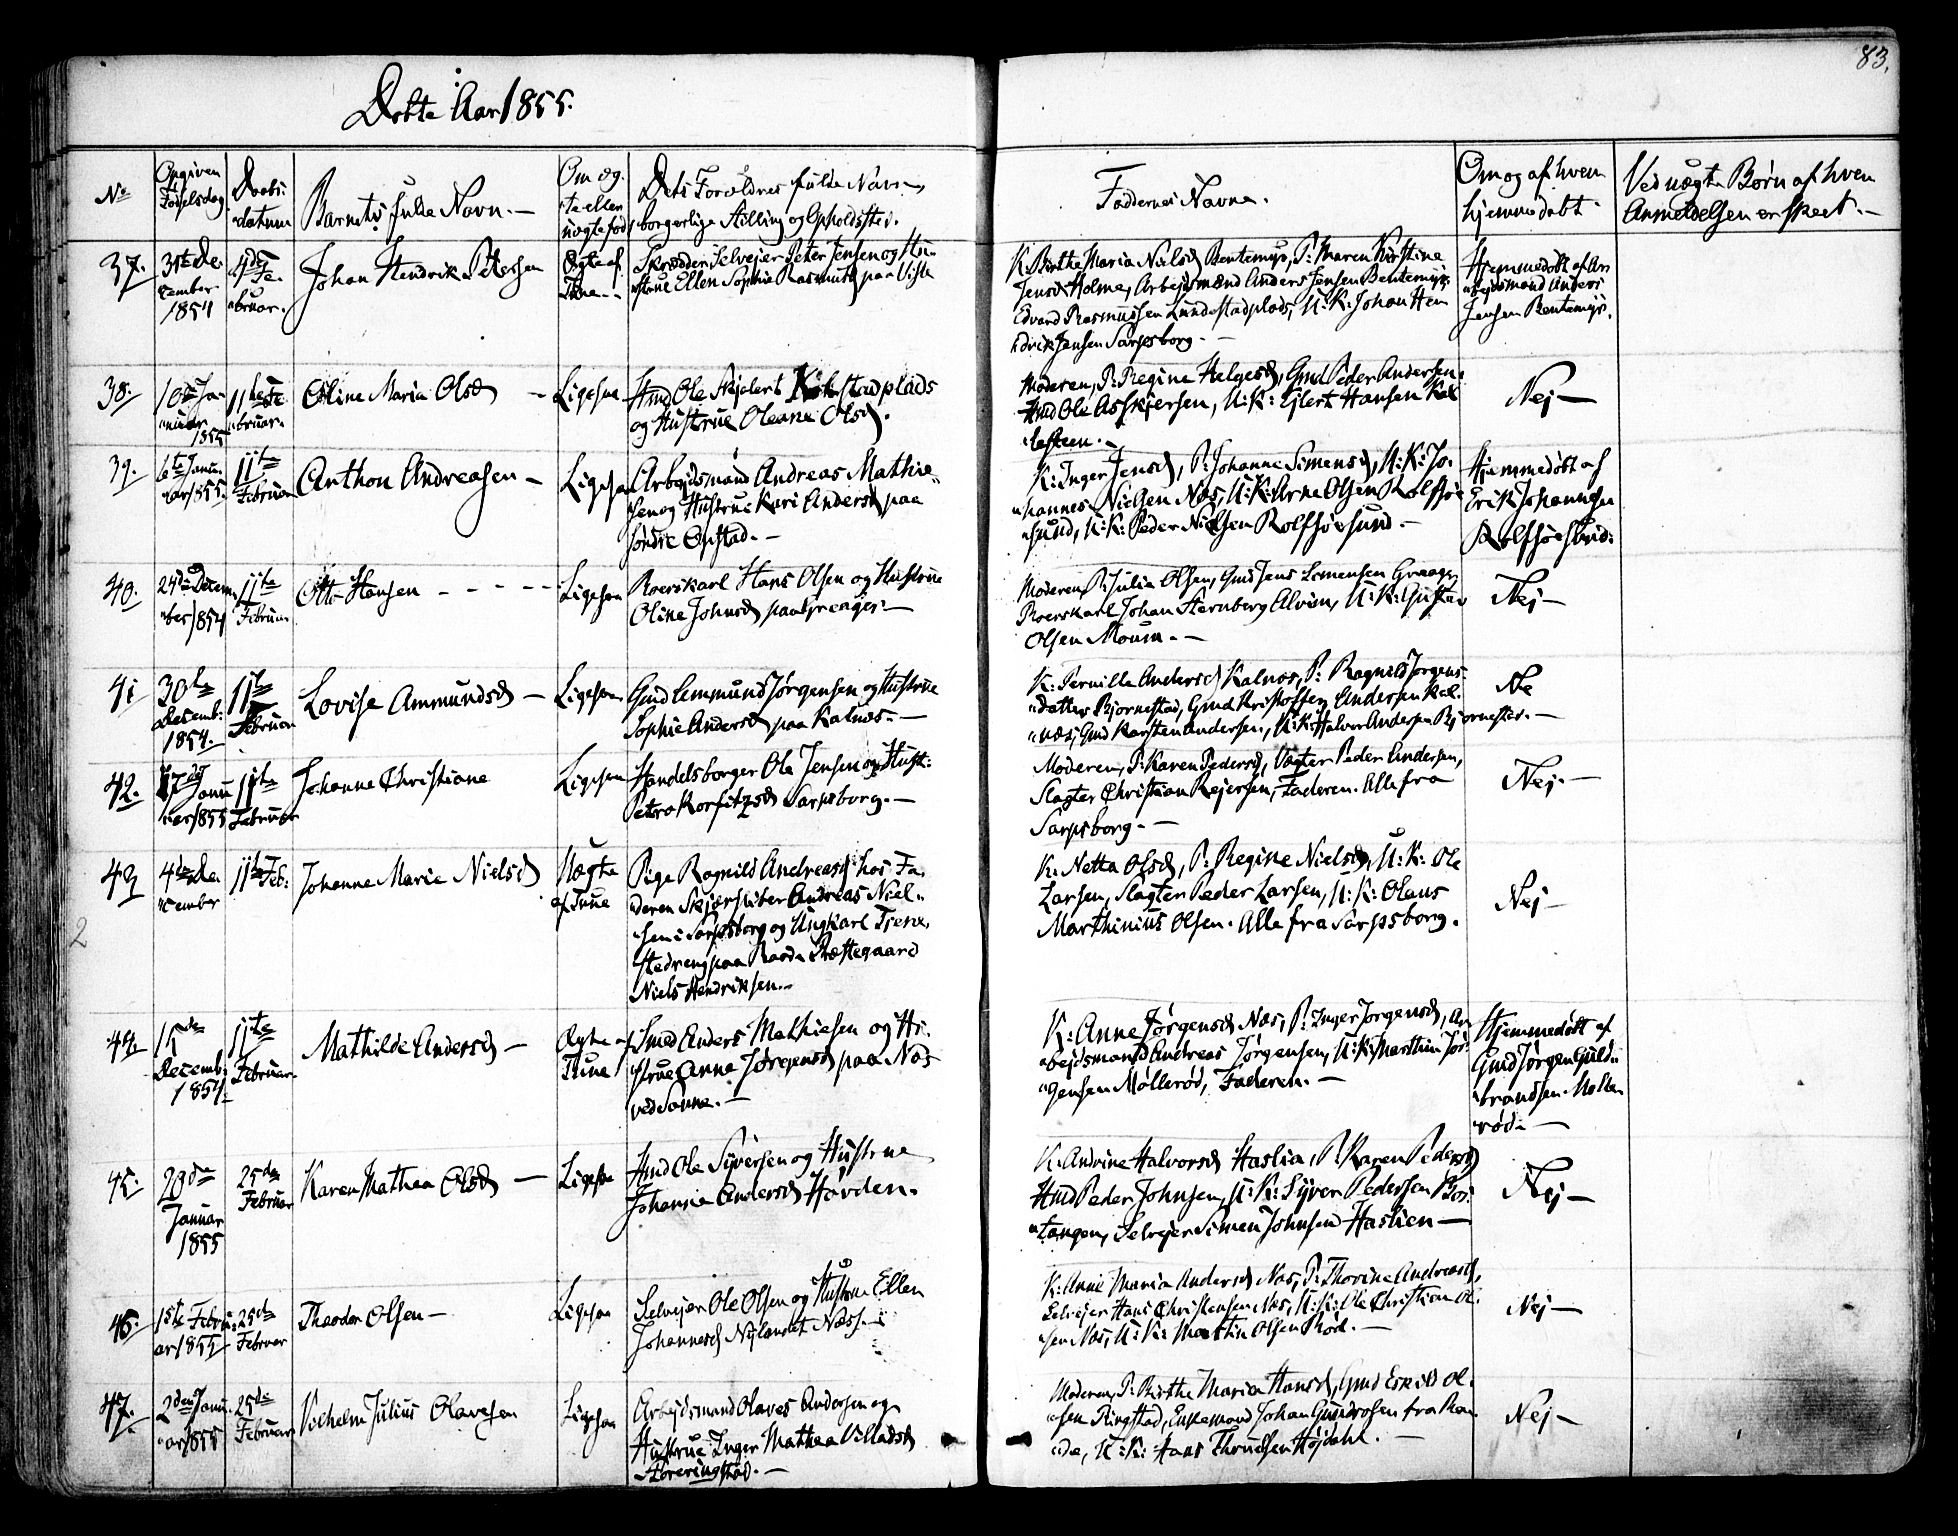 83.
Døbte i Aar 1855.
No
Opgiven Fødselsdag
Daabsdatum
Barnets fulde Navn. —
Om ægte eller uægte født
Dets Forældres fulde Navn, borgerlige Stilling og Opholdssted.
Faddernes Navne.
Om og af hvem hjemmedøbt.
Ved uægte Børn af hvem Anmeldelsen er skeet. —
37.
31te De-
cember
1854
4de Fe-
bruar.
Johan Hendrik Petersen
Ægte af
Tune. -
Skrædder Selvejer Peter Jensen og Hu-
strue Ellen Sophie Rasmusd paa
K. Birthe Maria Nielsd Bentemyr, P: Maren Kirstine
Jensd Holme, Arbejdsmand Anders Jensen Bentemyr,
Edvard Rasmussen Lundestadplads, U: K: Johan Hen
drik Jensen Sarpsborg. —
Hjemmedøbt af Ar
bejdsmand Anders
Jensen Bentemyr.
38.
10de Ja-
nuar
1855
11te Fe-
bruar.
Oline Maria Olsd —
Ligesaa
Hmd Ole Kjølertstadplads
og Hustrue Oleane Olsd.
Moderen, P: Regine Helgesd, Gmd Peder Andersen,
Hmd Ole Askjersen, U: K: Ejlert Hansen Kal
Nej —
39.
6te Janu-
ar 1855.
11te
Februar
Anthon Andreasen —
Ligesaa
Arbejdsmand Andreas Mathie-
sen og Hustrue Kari Andersd paa
søndre Opstad. —
K: Inger Jensd, P: Johanne Simensd, U: K: Jo-
hannes Nielsen Næs, U: K: Arne Olsen Rolfsøe
sund, U: K: Peder Nielsen Rolfsøesund. —
Hjemmedøbt af
Erik Johannesen
Rolfsøesund.
40.
24de Decem
ber 1854
11te
Februar
Otto Hansen - - - -
Ligesaa
Roerskarl Hans Olsen og Hustrue
Oline Johnsd paa Greager. —
Moderen, P: Julia Olsen, Gmd Jens Simensen Greager,
Roerskarl Johan Sternberg Alvim, U: K: Gustav
Olsen Moum. —
Nej —
41
30te
Decemb:
1854.
11te
Februar
Lovise Ammundsd —
Ligesaa
Gmd Ammund Jørgensen og Hustrue
Sophie Andersd paa Kalnæs. —
K: Pernille Andersd Kalnæs, P: Ragnild Jørgens-
datter Bjørnestad, Gmd Kristoffer Andersen Kal-
næs, Gmd Karsten Andersen, U: K: Halvor Andersen Bjørnestad. —
Ne
42.
17de
Janu
ar 1855
11te
Februar
Johanne Christiane
Ligesaa
Handelsborger Ole Jensen og Hust:
Petra Korfitzsd Sarpsborg. —
Moderen, P: Karen Pedersd, Vægter Peder Andersen,
Slagter Christian Rejersen, Faderen. Alle fra
Sarpsborg. —
Nej. —
43
4de De-
cember
11te Feb:
Johanne Marie Nielsd
Uægte
af Tune
Pige Ragnild Andreasd hos Fa-
deren Skjærsliber Andreas Niel-
sen i Sarpsborg og Ungkarl Tjene-
stedreng paa Raade Præstegaard
Niels Hendriksen. —
K. Netta Olsd, P: Regine Nielsd, U: K: Ole
Larsen, Slagter Peder Larsen, U: K: Olaus
Marthinius Olsen. Alle fra Sarpsborg.
Nej —
2
44
15de
Decemb:
1854.
11te
Februar
Mathilde Andersd —
Ægte af
Tune
Smed Anders Mathiesen og Hu-
strue Anne Jørgensd paa Næs
ved Sanne. —
K: Anne Jørgensd Næs, P: Inger Jørgensd, Ar
bejdsmand Andreas Jørgensen, U: K: Marthin Jør-
gensen Møllerød, Faderen. —
Hjemmedøbt af
Gmd Jørgen Guld-
brandsen Møller
rød. —
45.
29de
Januar
1855
25de
Februar
Karen Mathea Olsd —
Ligesaa
Hmd Ole Syversen og Hustrue
Johanna Andersd Haven.
K: Andrine Halvorsd Haslia, P: Karen Pedersd
Hmd Peder Johnsen, U: K: Syver Pedersen Bos-
tangen, Selvejer Simen Johnsen Haslien —
Nej —
46.
15te Febru
ar 1855
25de
Februar
Theodor Olsen —
Ligesaa
Selvejer Ole Olsen og Hustrue Ellen
Johannesd Nylandet Næss. —
K: Anne Maria Andersd Næs, P: Thorine Andreasd,
Selvejer Hans Christensen Næs, U: K: Ole Christian Ol-
sen Næs, U: K: Martin Olsen Rød. —
Nej —
47.
2den Janu-
ar 1855
25de
Februar
Vilhelm Julius Olavesen
Ligesaa
Arbejdsmand Olaves Andersen og
Hustrue Inger Mathea Villadsd
Moderen, P: Birthe Maria Hansd, Gmd Eskild Ol-
sen Ringstad, Enkemand Johan Gundrosen fra Raa-
de, U: K: Hans Thrudsen Højdahl. —
Nej —